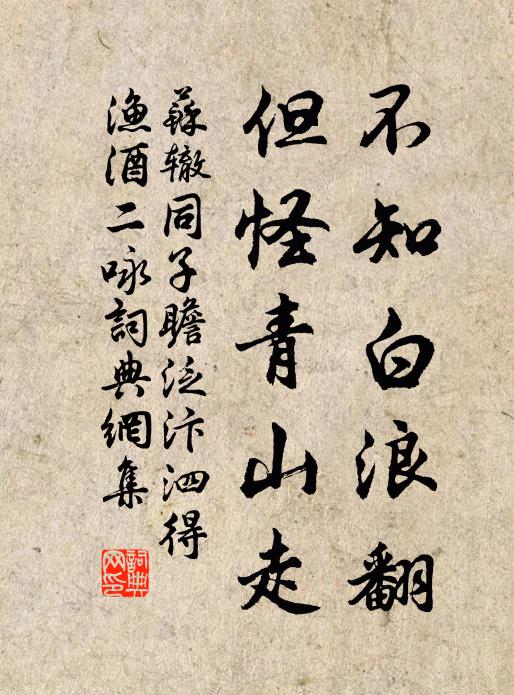 不知白浪翻
但怪青山走
蘇轍同子瞻泛汴泗得
漁酒二咏詞典網集
詞典
网印